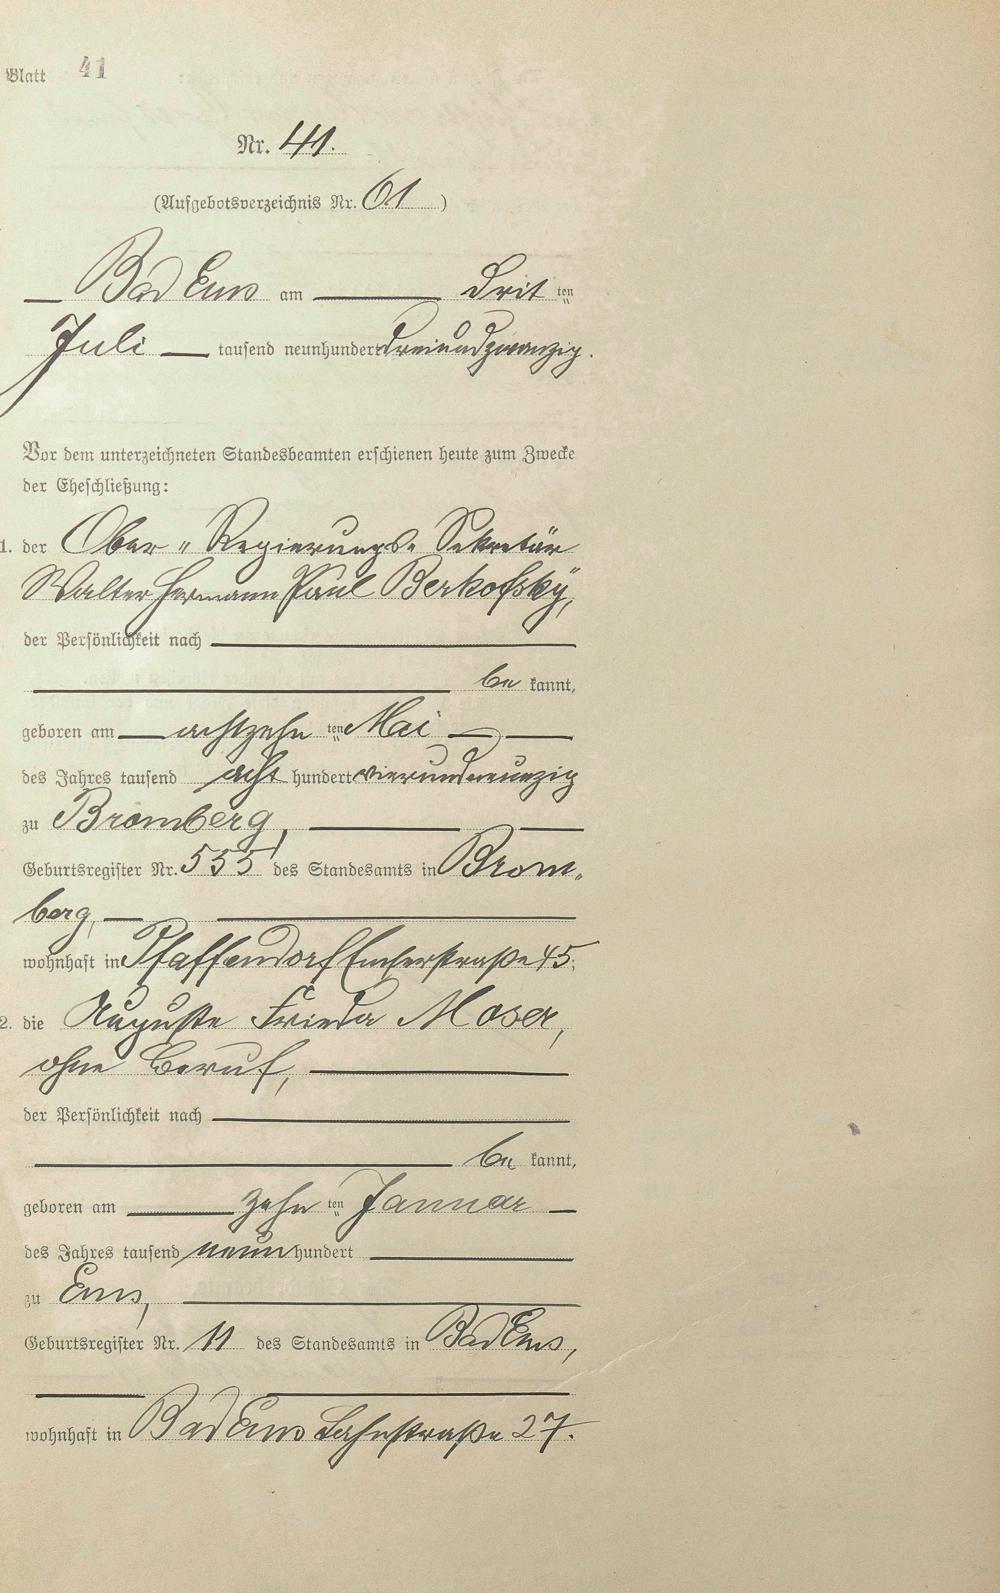 Blatt 41
Nr. 41.
(Aufgebotsverzeichnis Nr. 61)
Bad Ems am Drit ten
Juli tausend neunhundert dreiundzwanzig.
Vor dem unterzeichneten Standesbeamten erschienen heute zum Zwecke
der Eheschließung:
1. der Ober-Regierungs-Sekretär
Walter Hermann Paul Berkofsky,
der Persönlichkeit nach
be kannt,
geboren am achtzehn ten Mai
des Jahres tausend acht hundert vierundneunzig
zu Bromberg,
Geburtsregister Nr. 555 des Standesamts in Brom-
berg,
wohnhaft in Pfaffendorf Emserstraße 45;
2. die Auguste Frieda Moser,
ohne Beruf,
der Persönlichkeit nach
be kannt,
geboren am zehn ten Januar
des Jahres tausend neun hundert
zu Ems,
Geburtsregister Nr. 11 des Standesamts in Bad Ems,
wohnhaft in Bad Ems Lahnstraße 27.